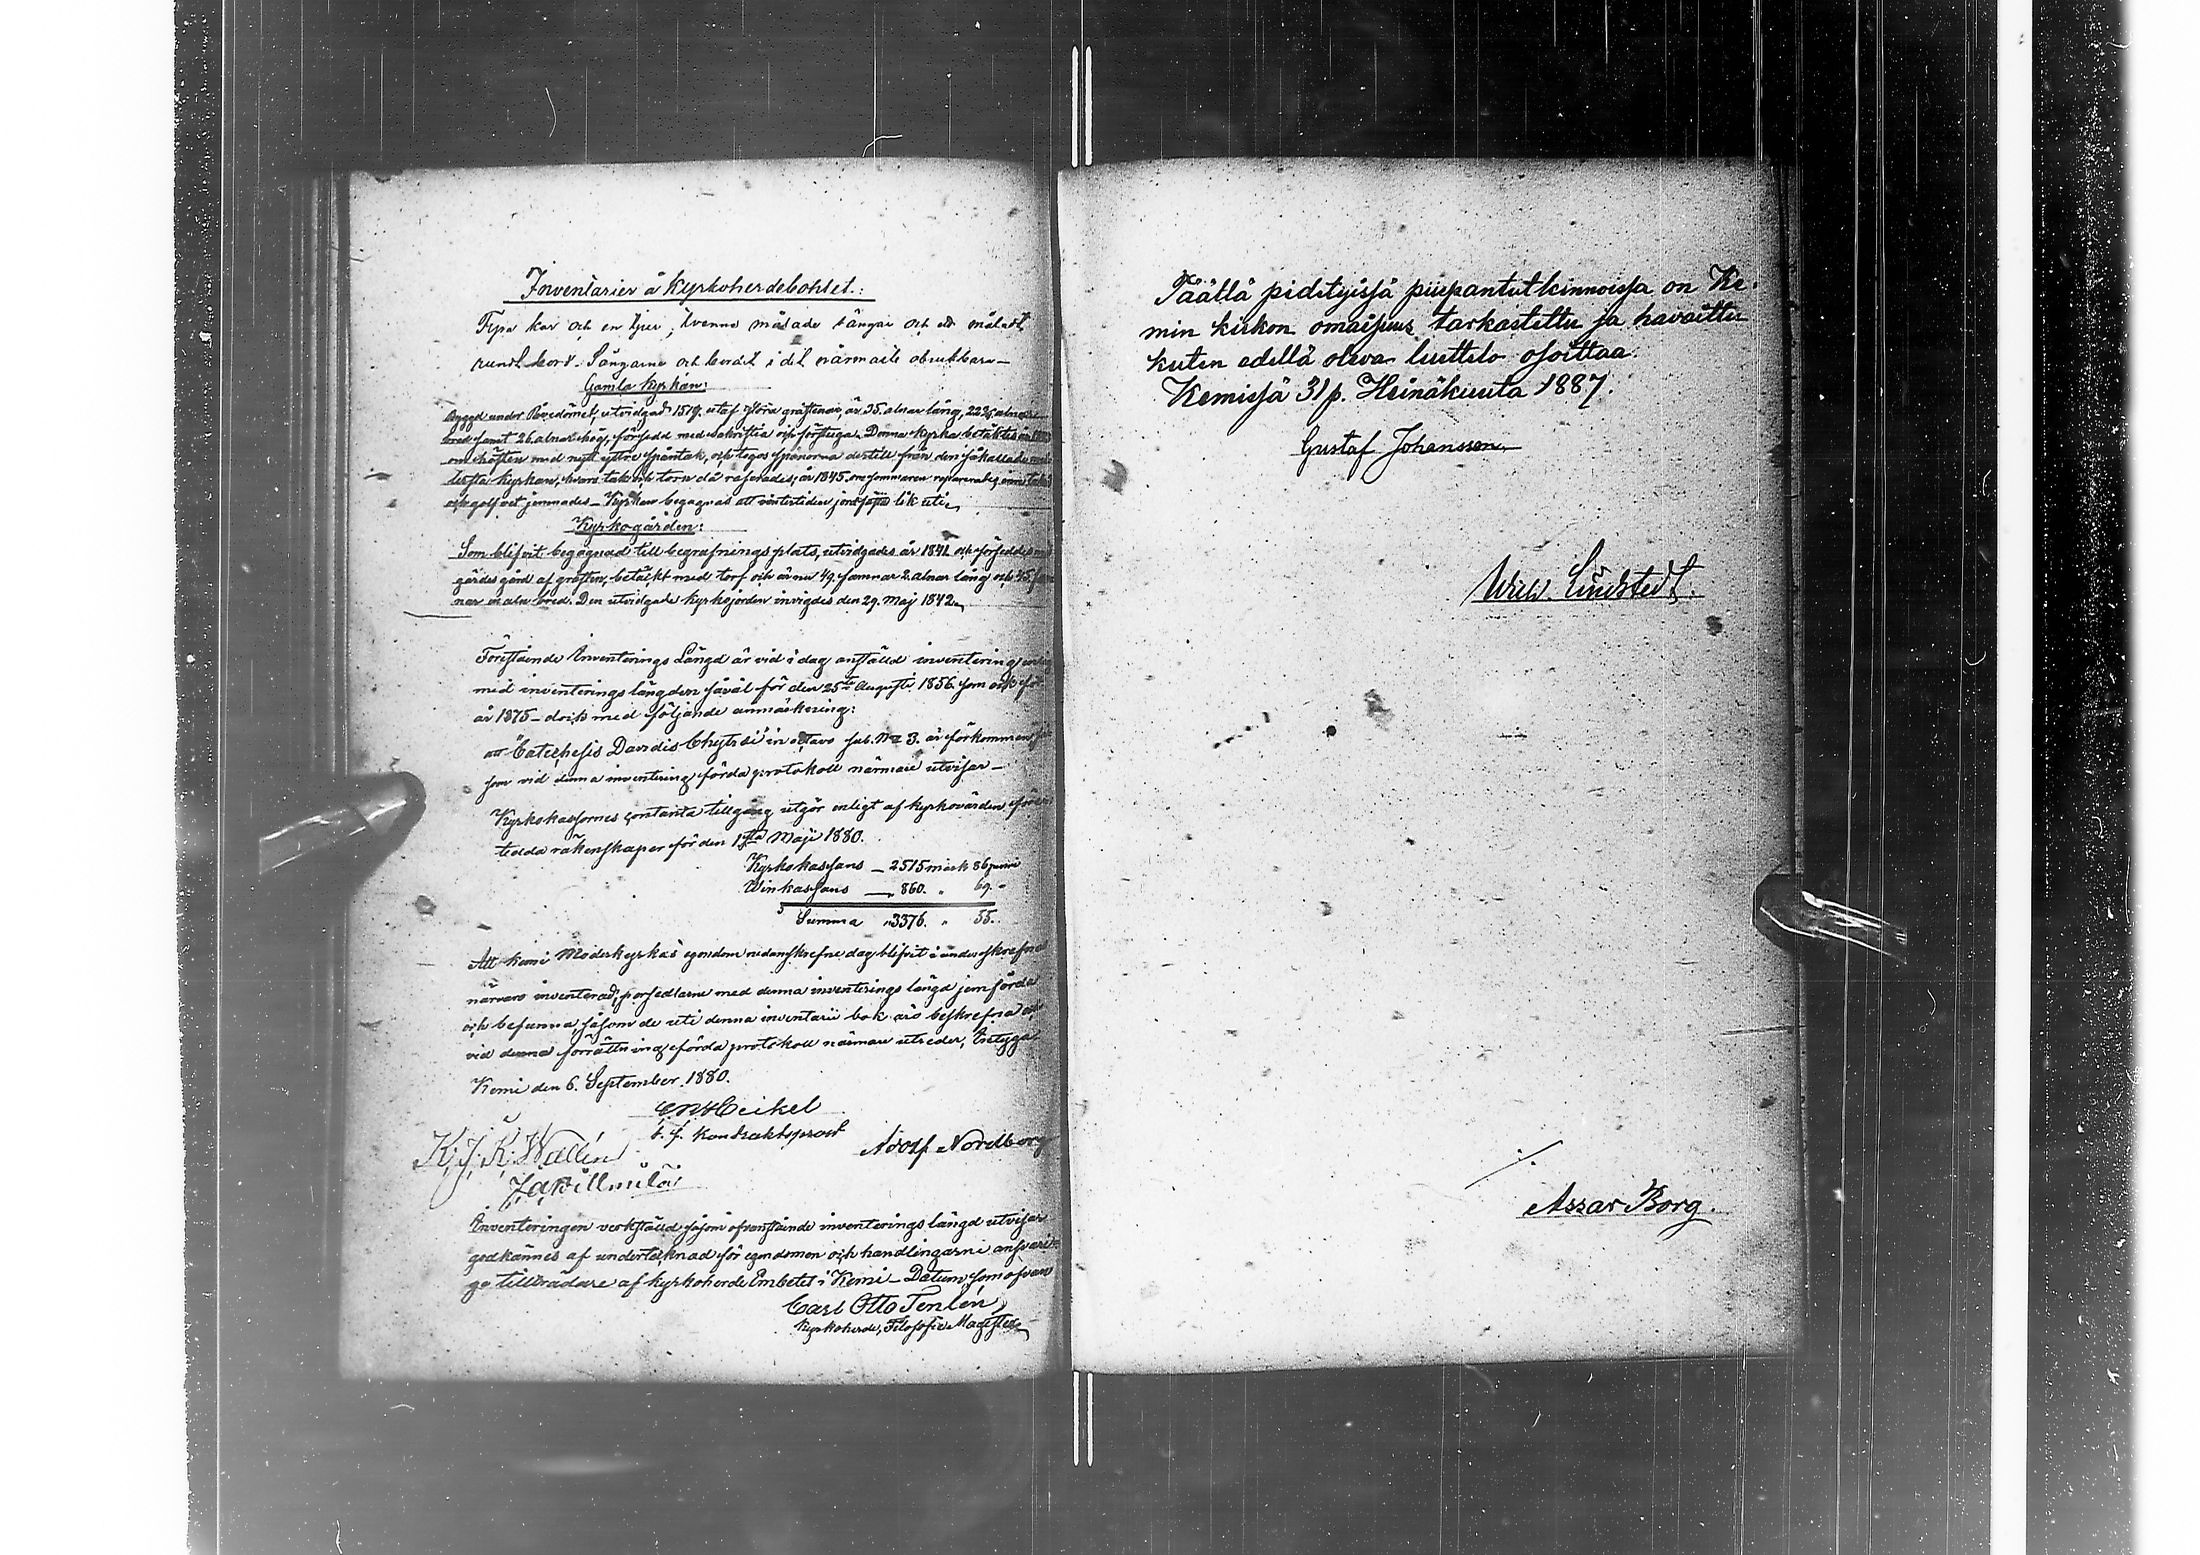 Inventarier å Kyrkoherdebohlet.:
Fyra kar och en tjur, tvenne målade sängar och ett måladt
rundt bord. Sängarne och bordet i det närmaste obrukbara —
Gamla Kyrkan:
Byggd under Påvedömet, utvidgad 1519. utaf stora gråstenar, är 35. alnar lång, 22 3/4 alnar
bred samt 26. alnar hög, försedd med Sakristia och förstuga. Denna kyrka betäktes
om hösten med nytt yttre spåntak, och togos spånorna dertill från den såkallade
kyrkan, hvars tak och torn då raserades; år 1845. om sommaren reparerades
och golfvet jemnades — Kyrkan begagnas att vintertiden lik uti.
Kyrkogården:
Som blifvit begagnad till begrafningsplats, utvidgades år 1841 och försedd
gärdesgård af gråsten, betäckt med torf och är nu 49. famnar 2. alnar lång och 45.
nar en aln bred. Den utvidgade kyrkojorden invigdes den 29. Maj 1842.
Förestående Inventerings Längd är vid i dag anställd inventering
med inventerings längden såväl för den 25te Augusti 1856. som ock för
år 1875 — dock med följande anmärkning:
att "Catechesis Davidis Chytræi" in octavo sub. No 3. är förkommen
som vid denna inventering förda protokoll närmare utvisar —
Kyrkokassornes contanta tillgång utgör enligt af kyrkovärden
tedda räkenskaper för den 1sta Maji 1880.
Kyrkokassans — 2515 mark 86 penni
Winkassans — 860. " 69. "
Summa " 3376. " 55.
Att Kemi Moderkyrkas egendom nedanskrefne dag blifvit i underskrefne
närvaro inventerad, persedlarne med denna inventerings längd jemförda
och befunna, såsom de uti denna inventarii bok äro beskrefna och
vid denna förrättning förda protokoll närmare utreder, Intyga
Kemi den 6. September. 1880.
Heikel
t. f. Kontraktsprost
K. J. R. Wallin
Adolf Nordberg
Inventeringen verkställd såsom ofvanstående inventerings längd utvisar
godkännes af undertecknad för egendomen och handlingarne ansvari-
ge tillträdare af kyrkoherde Embetet i Kemi — Datum som ofvan
Carl Otto Tenlén
Kyrkoherde, Filosofie Magister
Täällä pidetyissä piispantutkinnoissa on Ke-
min kirkon omaisuus tarkastettu ja havaittu
kuten edellä oleva luettelo osoittaa.
Kemissä 31 p. Heinäkuuta 1887.
Gustaf Johansson.
Wilh. Lindstedt.
Assar Borg.